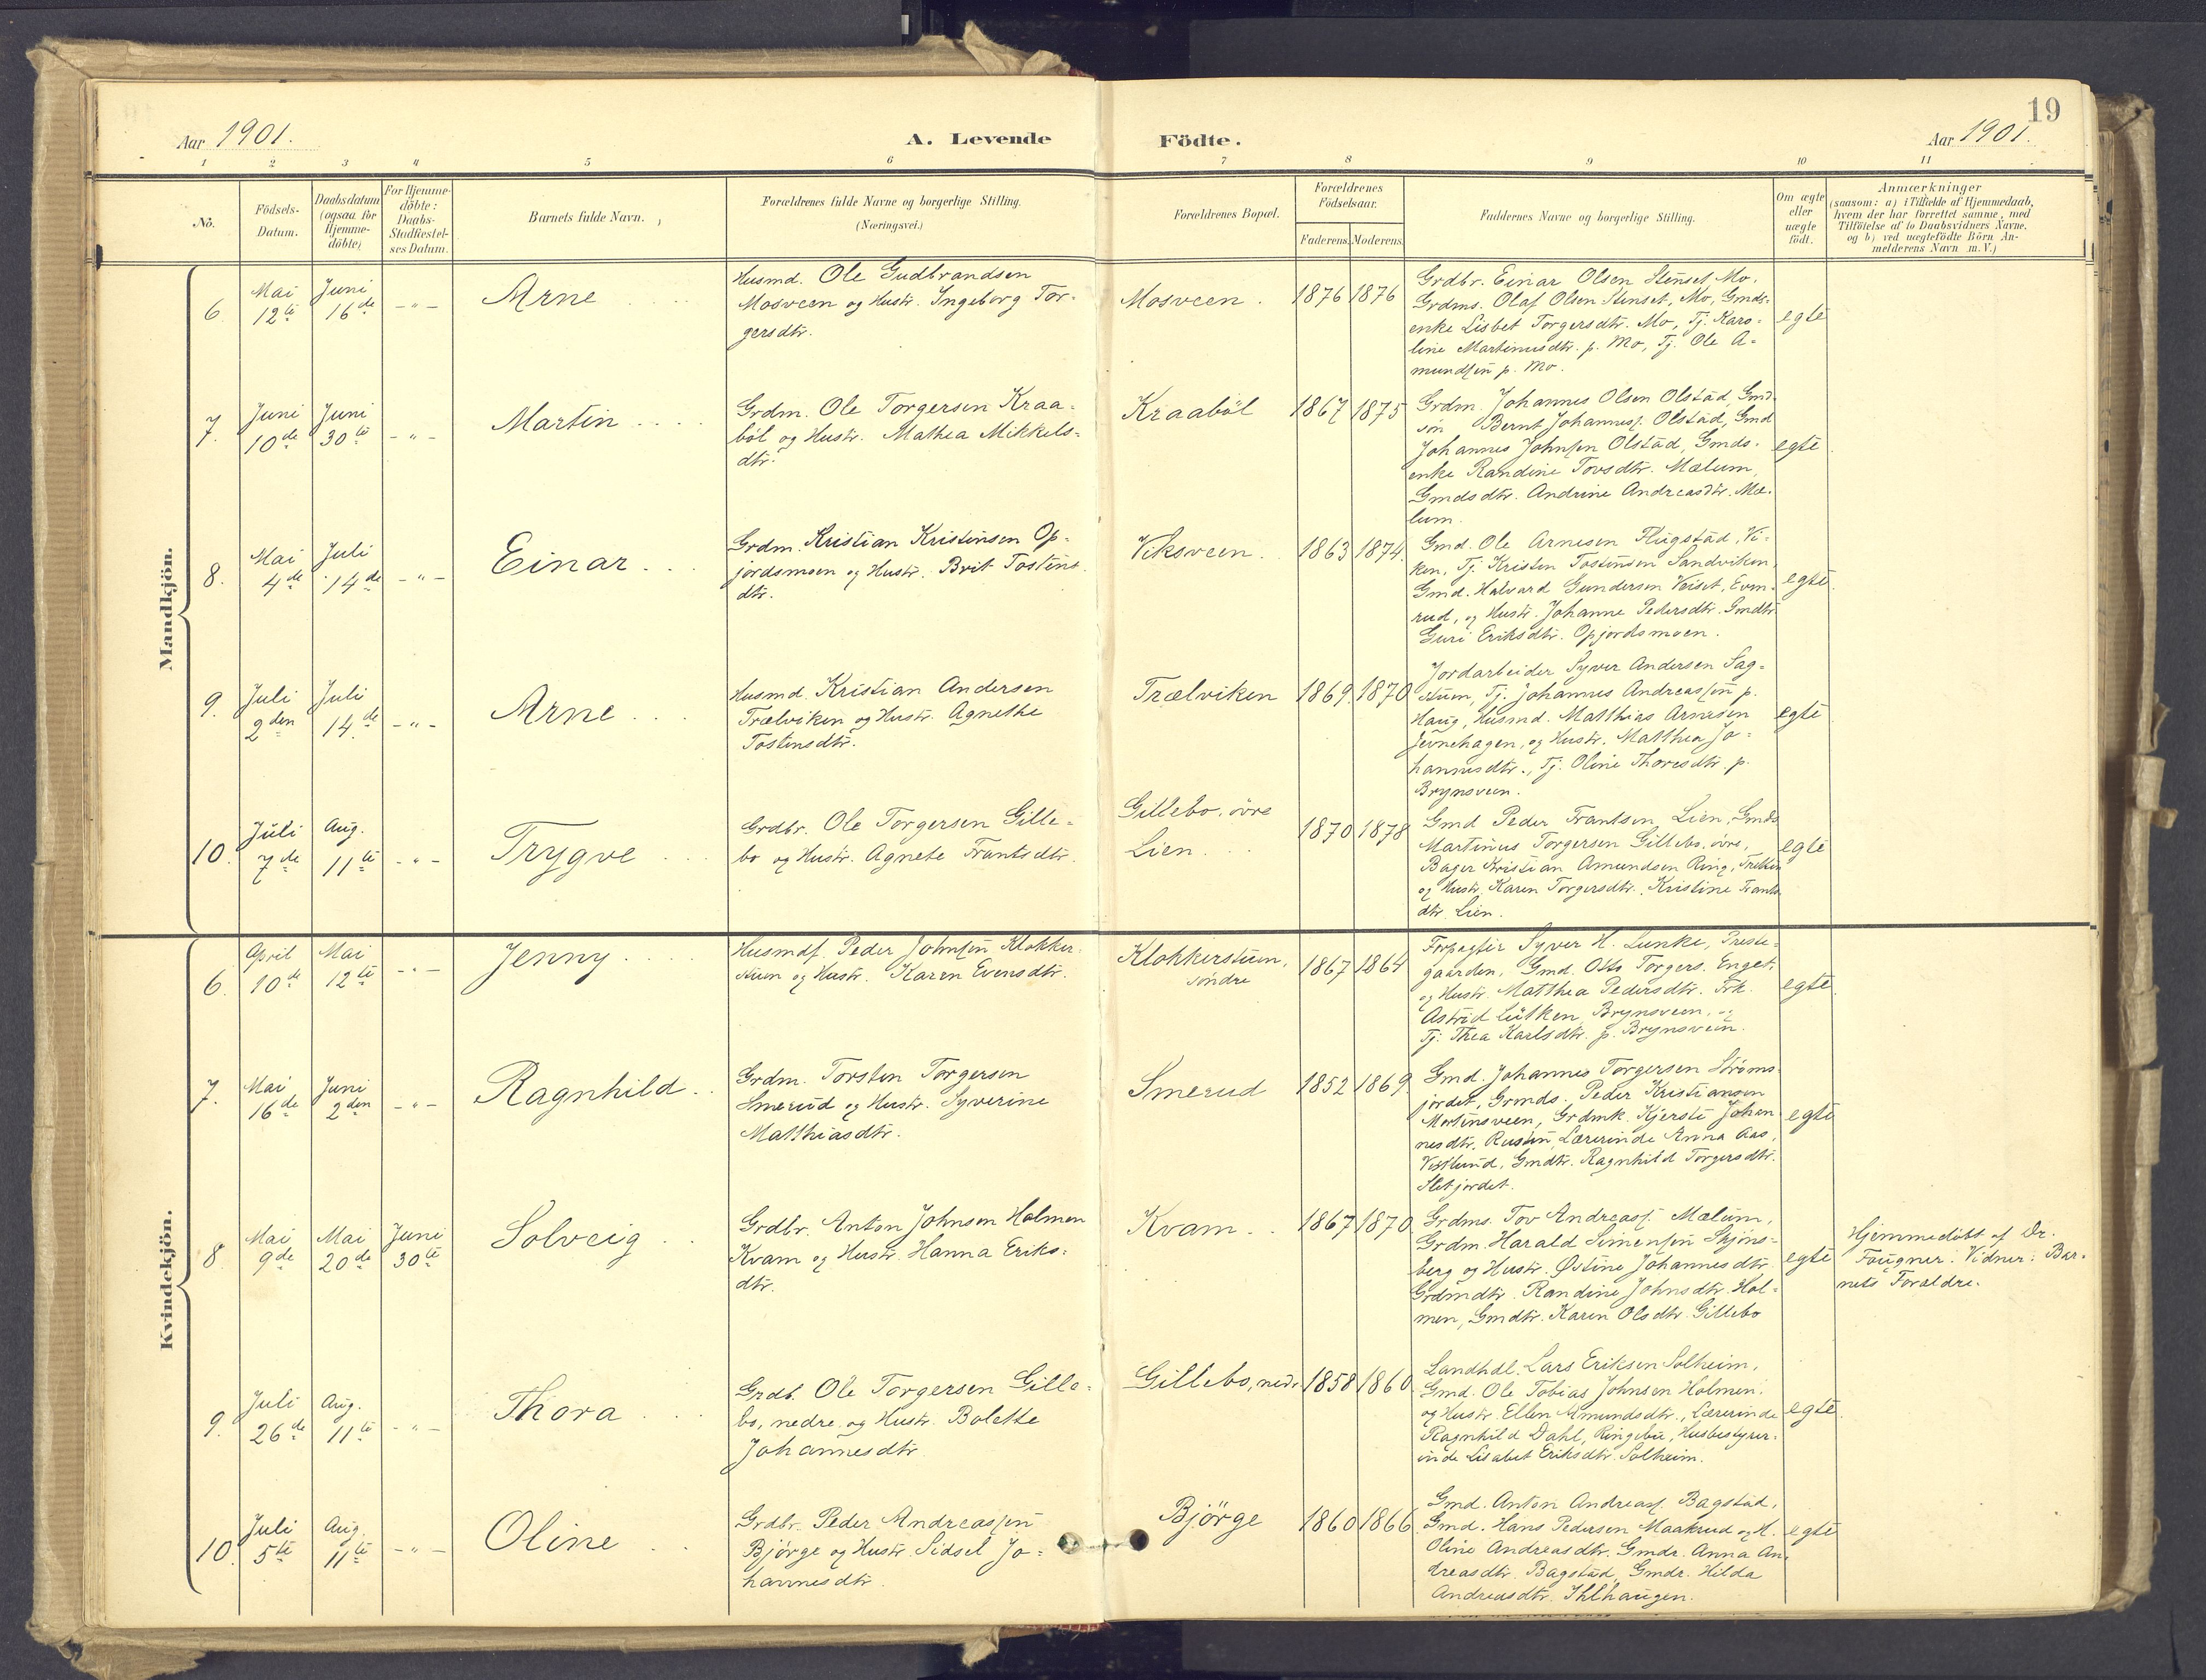 19
Aar 1901.
A. Levende
Födte.
Aar 1901.
1 2 3 4 5 6 7 8 9 10 11
No.
Födsels-
Datum.
Daabsdatum
(ogsaa for
Hjemme-
döbte)
For Hjemme-
döbte:
Daabs-
Stadfæstel-
ses Datum.
Barnets fulde Navn.
Forældrenes fulde Navne og borgerlige Stilling.
(Næringsvei.)
Forældrenes Bopæl.
Forældrenes
Födselsaar.
Faderens. Moderens.
Faddernes Navne og borgerlige Stilling.
Om ægte
eller
uægte
födt.
Anmærkninger
(saasom: a) i Tilfælde af Hjemmedaab,
hvem der har forrettet samme, med
Tilföielse af to Daabsvidners Navne,
og b) ved uægtefödte Börn An-
melderens Navn m. V.)
Mandkjön.
6.
Mai
12te
Juni
16de
- " -
Arne
Husmd. Ole Gudbrandsen
Mosveen og Hustr. Ingeborg Tor-
gersdtr.
Mosveen.
1876 1876
Grdbr. Einar Olsen Stenset, Mo.
Grdms. Olaf Olsen Stenset, Mo, Gmds-
enke Lisbet Torgersdtr. Mo, Tj. Karo-
line Martinusdtr. p. Mo, Tj. Ole A-
mundsen p. Mo.
egte
7.
Juni
10de
Juni
30te
- " -
Martin
Grdm. Ole Torgersen Kraa-
böl og Hustr. Mathea Mikkels-
dtr.
Kraaböl
1867 1875
Grdm. Johannes Olsen Olstad, Gmd-
sön Bernt Johanness. Olstad, Gmd
Johannes Johnsen Olstad, Gmds-
enke Randine Tovsdtr. Mælum,
Gmdsdtr. Andrine Andreasdtr. Mæ-
lum.
egte
8.
Mai
4de
Juli
14de
- " -
Einar
Grdm. Kristian Kristinsen Op-
jordsmoen og Hustr. Brit Tostens-
dtr.
Viksveen.
1863 1874.
Gmd. Ole Arnesen Flugstad, Vi-
ken, Tj. Kristen Tostensen Sandviken,
Gmd. Halvard Gundersen Veiset, Evm-
rud, og Hustr. Johanne Pedersdtr. Gmdtr
Guri Eriksdtr. Opjordsmoen.
egte
9.
Juli
2den
Juli
14de
- " -
Arne
Husmd. Kristian Andersen
Trælviken og Hustr. Agnethe
Tostensdtr.
Trælviken
1869. 1870
Jordarbeider Syver Andersen Sag-
stuen, Tj. Johannes Andreassen p.
Haug, Husmd. Matthias Arnesen
Jevnehagen, og Hustr. Matthea Jo-
hannesdtr., Tj. Oline Thoresdtr. p.
Brynsveen.
egte
10.
Juli
7de
Aug.
11te
- " -
Trygve
Grdbr. Ole Torgersen Gille-
bo og Hustr. Agnete Frantsdtr.
Gillebo, övre
Lien.
1870 1878
Gmd Peder Frantsen, Lien, Gmds
Martinus Torgersen Gillebo, övre,
Bager Kristian Amundsen Ring,
og Hustr. Karen Torgersdtr. Kristine Frants-
dtr. Lien.
egte
Kvindekjön.
6.
April
10de
Mai
12te
- " -
Jenny
Husmds. Peder Johnsen Klokker-
stuen og Hustr. Karen Evensdtr.
Klokkerstuen,
söndre
1867 1864
Forpagter Syver H. Lunke, Preste-
gaarden, Gmd. Otto Torgers. Enget,
og Hustr. Matthea Pedersdtr. Frk.
Astrid Lütken Brynsveen, og
Tj. Thea Karlsdtr. p. Brynsveen.
egte
7.
Mai
16de
Juni
2den
- " -
Ragnhild
Grdm. Torsten Torgersen
Smerud og Hustr. Syverine
Matthiasdtr.
Smerud
1852 1869
Gmd. Johannes Torgersen Ströms-
jordet, Grmds. Peder Kristiansen
Mortensveen, Grdmk. Kjersti Johan-
nesdtr. Rusten, Lærerinde Anna Aas,
Vestlund, Gmdtr. Ragnhild Torgersdtr.
Sletjordet.
egte
8.
Mai
9de
Mai
20de
Juni
30te
Solveig
Grdbr. Anton Johnsen Holmen
Kvam og Hustr. Hanna Eriks-
dtr.
Kvam
1867 1870
Grdms. Tov Andreass. Mælum,
Grdm. Harald Simensen Skjöns-
berg og Hustr. Østine Johannesdtr.
Grdmdtr. Randine Johnsdtr. Hol-
men, Gmdtr. Karen Olsdtr. Gillebo
egte
Hjemmedöbt af Dr.
Faugner. Vidner: Bar-
nets Foraldre.
9.
Juli
26de
Aug.
11te
- " -
Thora
Grdb. Ole Torgersen Gille-
bo, nedre og Hustr. Bolette
Johannesdtr.
Gillebo, nedr.
1858 1860
Landhdl. Lars Eriksen Solheim,
Gmd. Ole Tobias Johnsen Holmen,
og Hustr. Ellen Amundsdtr., Lærerinde
Ragnhild Dahl, Ringebu, Husbestyrer-
inde Lisabet Eriksdtr. Solheim.
egte
10.
Juli
5te
Aug.
11te
- " -
Oline
Grdbr. Peder Andreassen
Bjørge og Hustr. Sidsel Jo-
hannesdtr.
Bjørge
1860 1866
Gmd. Anton Andreass. Bagstad,
Gmd. Hans Pedersen Maakrud og H.
Oline Andreasdtr. Gmdr. Anna An-
dreasdtr. Bagstad, Gmdr. Hilda
Andreasdtr. Ihlhaugen.
egte